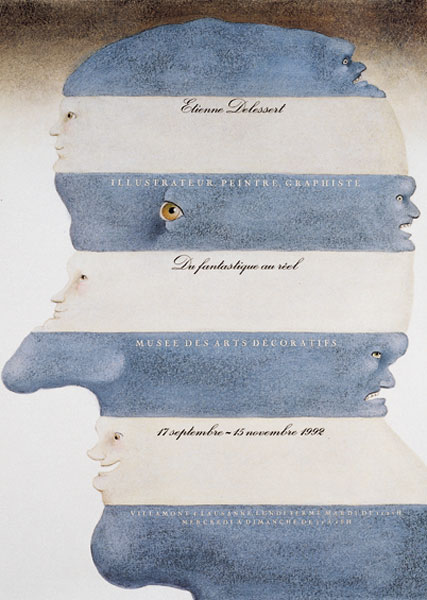 Etienne Delessert
ILLUSTRATEUR, PEINTRE, GRAPHISTE
Du fantastique au réel
MUSÉE DES ARTS DÉCORATIFS
17 septembre ~ 15 novembre 1992
VILLAMONT 4 LAUSANNE LUNDI FERMÉ MARDI DE
MERCREDI À DIMANCHE DE